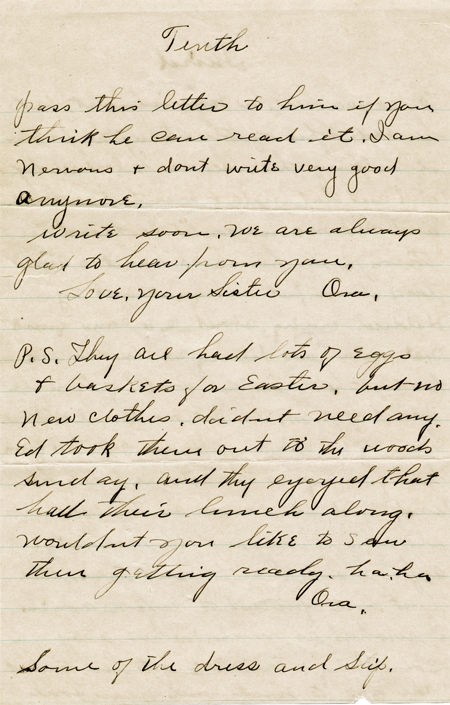 Tenth
pass this letter to him if you
think he can read it. I am
Nervous + dont write very good
anymore.
write soon. We are always
glad to hear from you.
Love, your Sister Ora.
P.S. They all had lots of eggs
+ baskets for Easter. but no
New clothes. didnt need any.
Ed took them out to the woods
sunday. and they enjoyed that
had their lunch along.
wouldnt you like to saw
them getting ready. ha.ha
Ora.
Some of the dress and Slip.